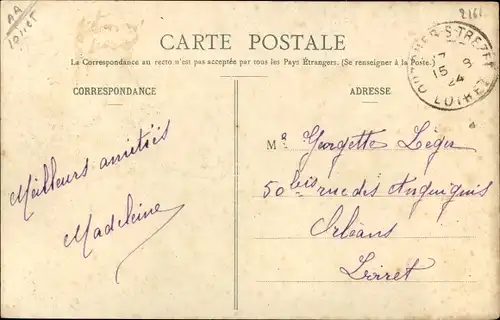 AA
2161
CARTE POSTALE
La Correspondance au recto n'est pas acceptée par tous les Pays Étrangers. (Se renseigner à la Poste.)
CORRESPONDANCE
ADRESSE
OUZOUER-S-TREZEE
LOIRET
Meilleurs amitiés
Madeleine
Georgette Léger
50 bis rue des Anguignis
Orléans
Loiret